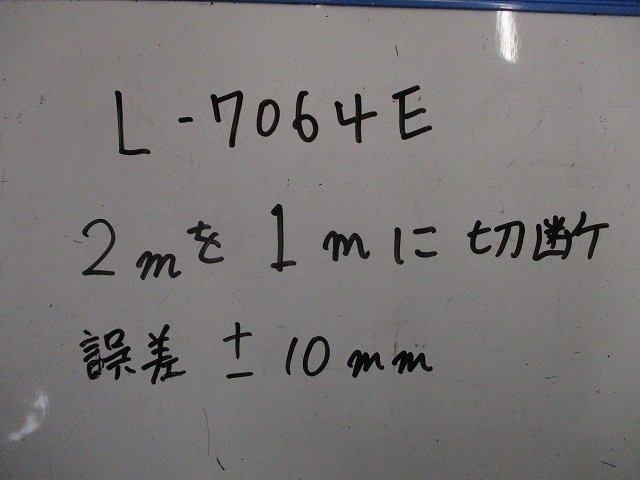 L-7064E
2mを1mに切断
誤差 ±10mm